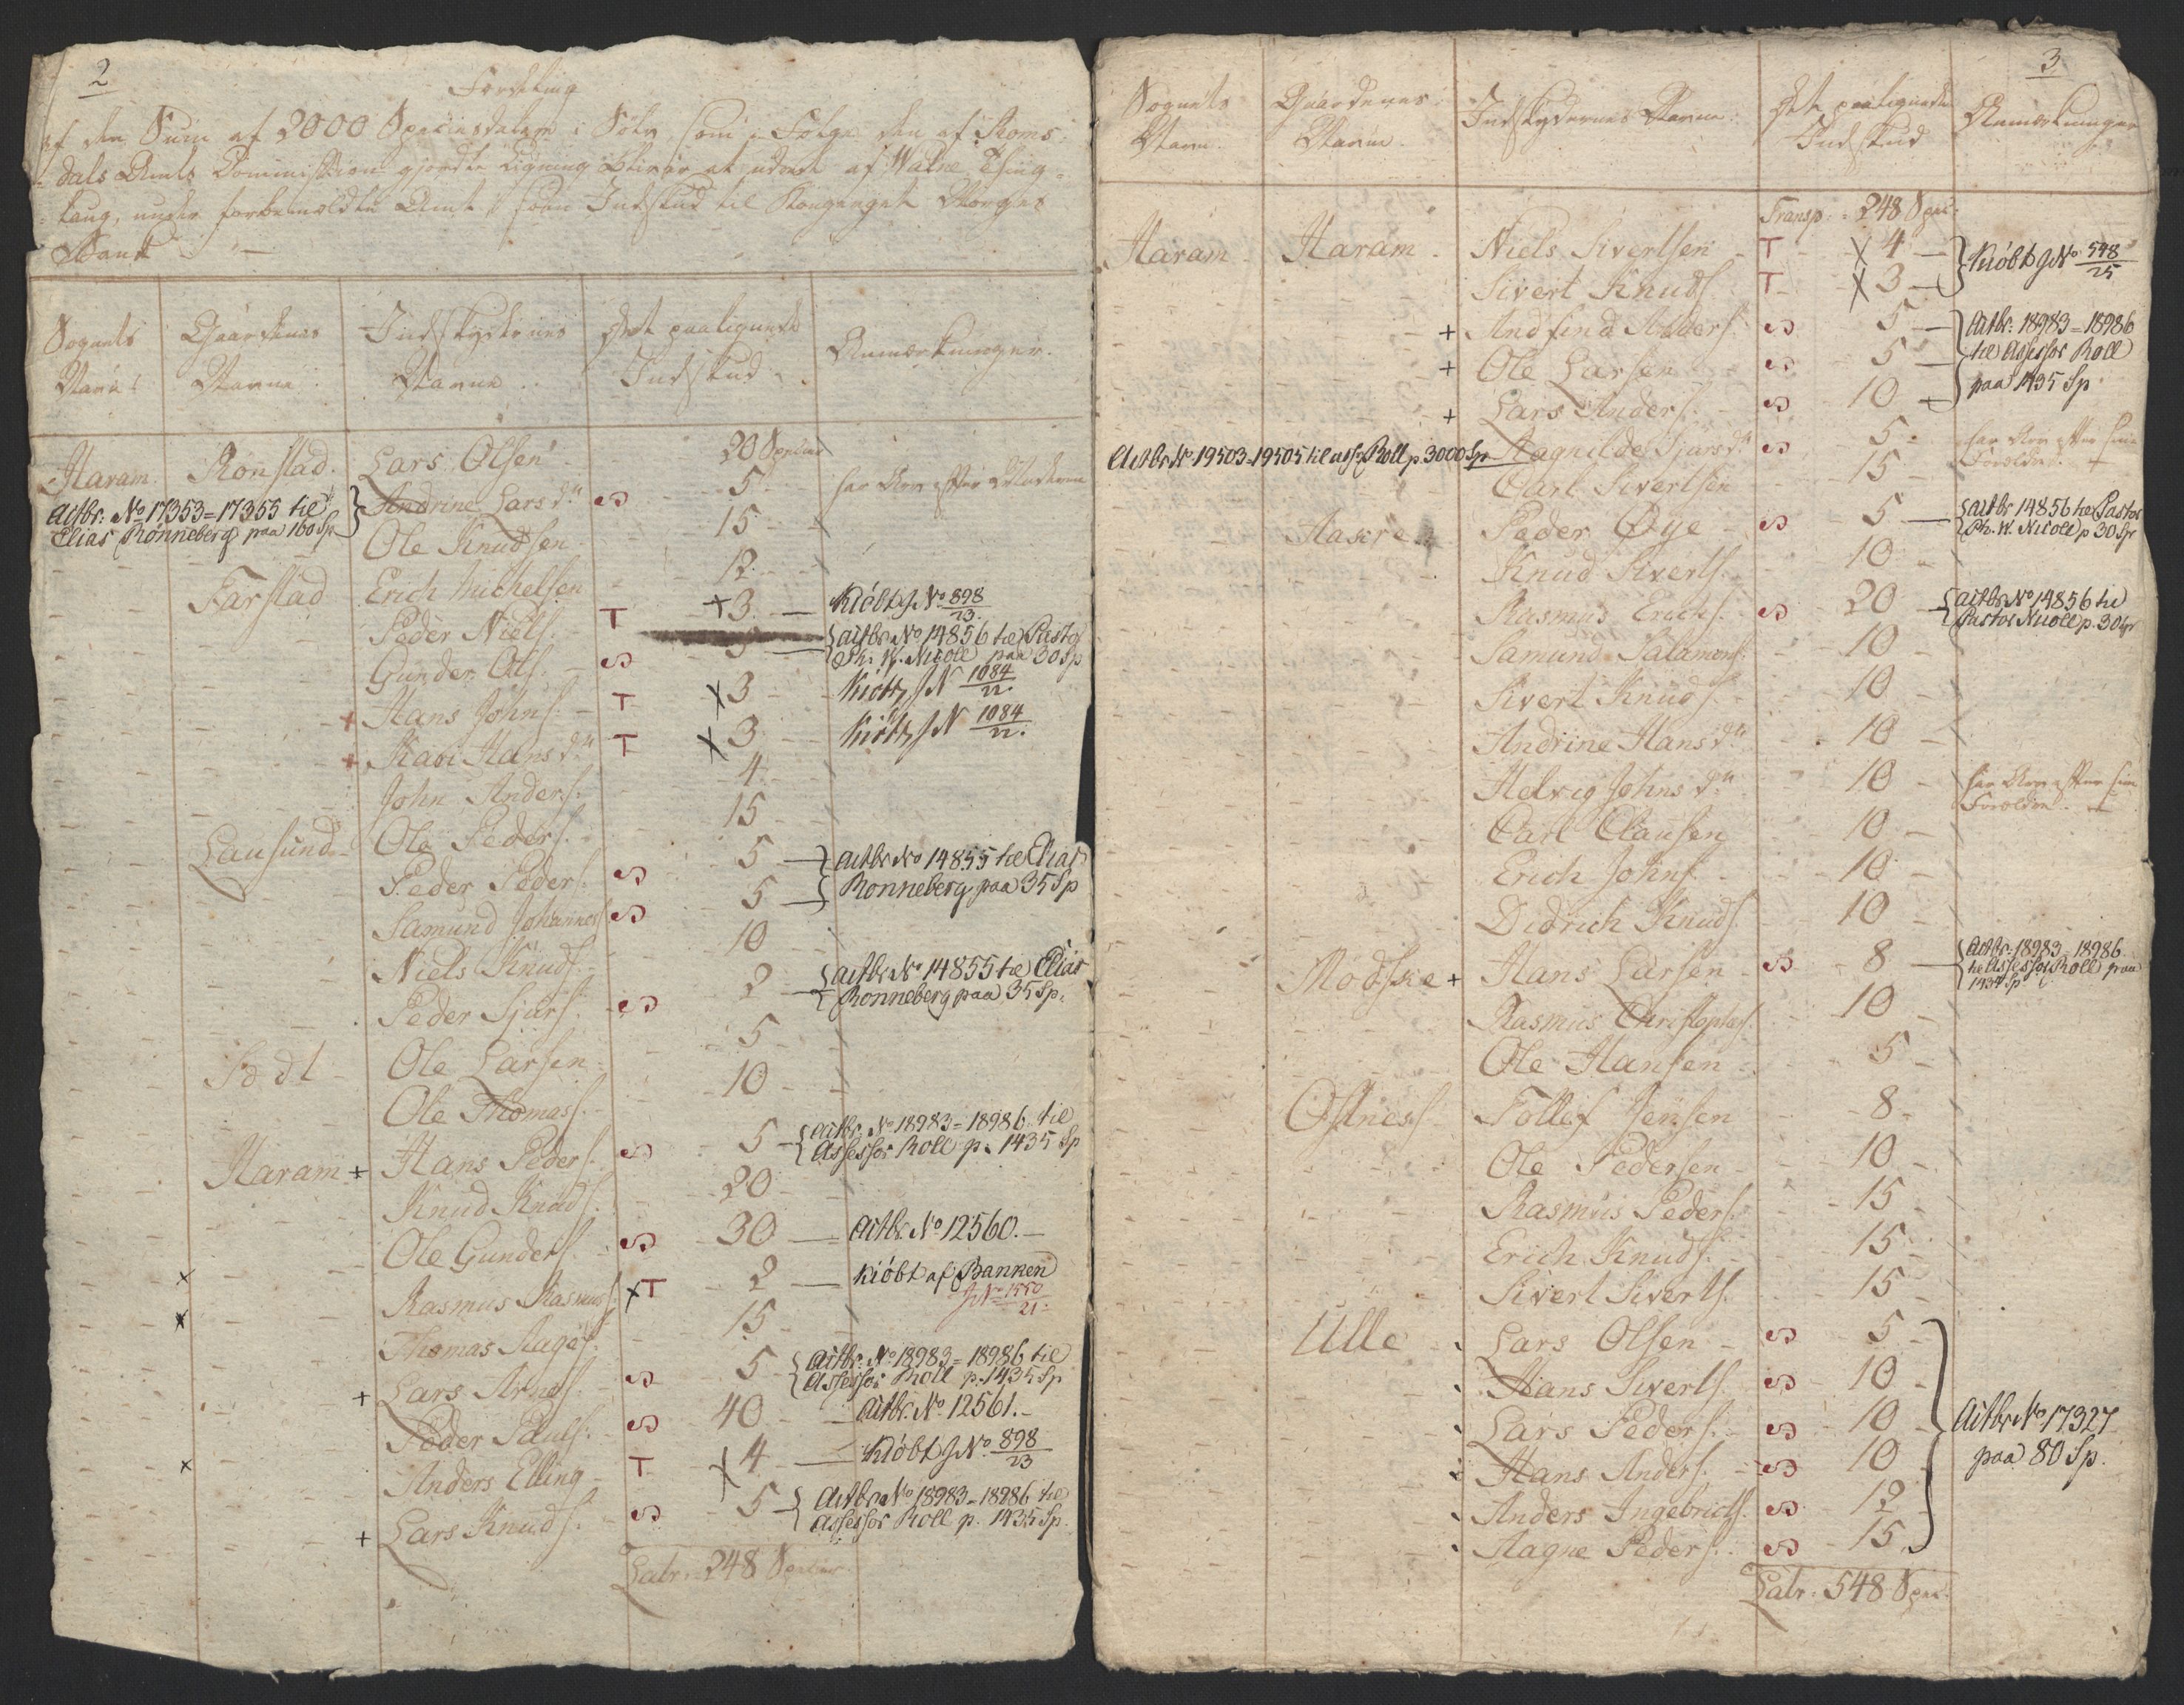 2
Fordeling
af den Sum af 2000 Speciesdalere i Sølv som i Følge den af Roms-
dals Amts Commission gjordte Ligning bliver at udrede af Watne Thing-
laug, under forbemeldte Amt som Indskud til Kongeriget Norges
Bank
Sognets Navn. Gaardenes Navne. Indskydernes Navne. Det paalignede Indskud. Anmærkninger.
Haram. Rønstad. Lars Olsen 20 Species
Actbr: No 17353=17355 til Elias Rønneberg paa 160 Sp Andrine Larsdr S 5 har Arv efter Moderen
Ole Knudsen 15
Farstad Erich Michelsen 12
Peder Niels. T +3 Kiøbt J No 898/23.
Gunder Ols. S 5 Actbr No 14856 til Pastor Ph. W. Nicoll paa 30 Sp
+ Hans Johns. T x 3 Kiøbt J N 1084/22.
+ Kari Hansdr T x 3 Kiøbt J N 1084/22.
John Anders. 4
Lausund Ole Peders. 15
Peder Peders. S 5 Actbr No 14855 til Elias
Samund Johannes. S 5 Rønneberg paa 35 Sp
Niels Knuds. 10
Peder Sjurs. S 2 Actbr No 14855 til Elias Rønneberg paa 35 Sp.
Ole Larsen 5
Ole Thomas. 10
Haram + Hans Peders. S 5 Actbr. No 18983=18986 til Assessor Roll p. 1435 Sp
Knud Knuds. 20
Ole Gunders. S 30 Actbr. No 12560.
x Rasmus Rasmus. x T 2 Kiøbt af Banken J No 1550/21.
x Thomas Aages. 15
+ Lars Arnes. S 5 Actbr. No 18983=18986 til Assessor Roll p. 1435 Sp
Peder Pauls. S 40 Actbr. No 12561.
x Anders Elling T x 4 Kiøbt J No 898/23
+ Lars Knuds. S 5 Actbr No 18983=18986 til Assessor Roll p. 1435 Sp.
Latr. 248 Species
3
Sognets Navn. Gaardenes Navne. Indskydernes Navne. Det paalignede Indskud Anmærkninger
Transp. 248 Spec.
Haram Haram Niels Sivertsen T x 4 Kiøbt J No 548/25
Sivert Knuds. T x 3
+ Andfind Anders. S 5 Actbr. 18983=18986
+ Ole Larsen S 5 til Assessor Roll
+ Lars Anders. S 10 paa 1435 Sp.
Actbr No 19503=19505 til ass. Roll p. 3000 Sp Ragnilde Sjursdr S 5 har Arv efter sine Forældre.
Carl Sivertsen 15
Aakre Peder Øye S 5 Actbr 14856 til Pastor Ph. W. Nicoll p 30 Sp
Knud Siverts. 10
Rasmus Erichs. S 20 Actbr No 14856 til Pastor Nicoll p. 30 Sp
Samund Salamons. 10
Sivert Knuds. 10
Andrine Hansdr 10
Helvig Johnsdr 10 har Arv efter sine Forældre.
Carl Clausen 10
Erich Johns. 10
Didrich Knuds. 10
Rødske + Hans Larsen S 8 Actbr. 18983=18986 til Assessor Roll paa 1435 Sp
Rasmus Christophers. 10
Ole Hansen 5
Østnes Tollef Jensen 8
Ole Pedersen 10
Rasmus Peders. 15
Erich Knuds. 15
Sivert Siverts. 15
Ulle Lars Olsen S 5
Hans Siverts. S 10
Lars Peders. S 10 Actbr No 17327
Hans Anders. S 10 paa 80 Sp.
Anders Ingebricts. S 12
Aagne Peders. S 15
Latr. 548 Spec.